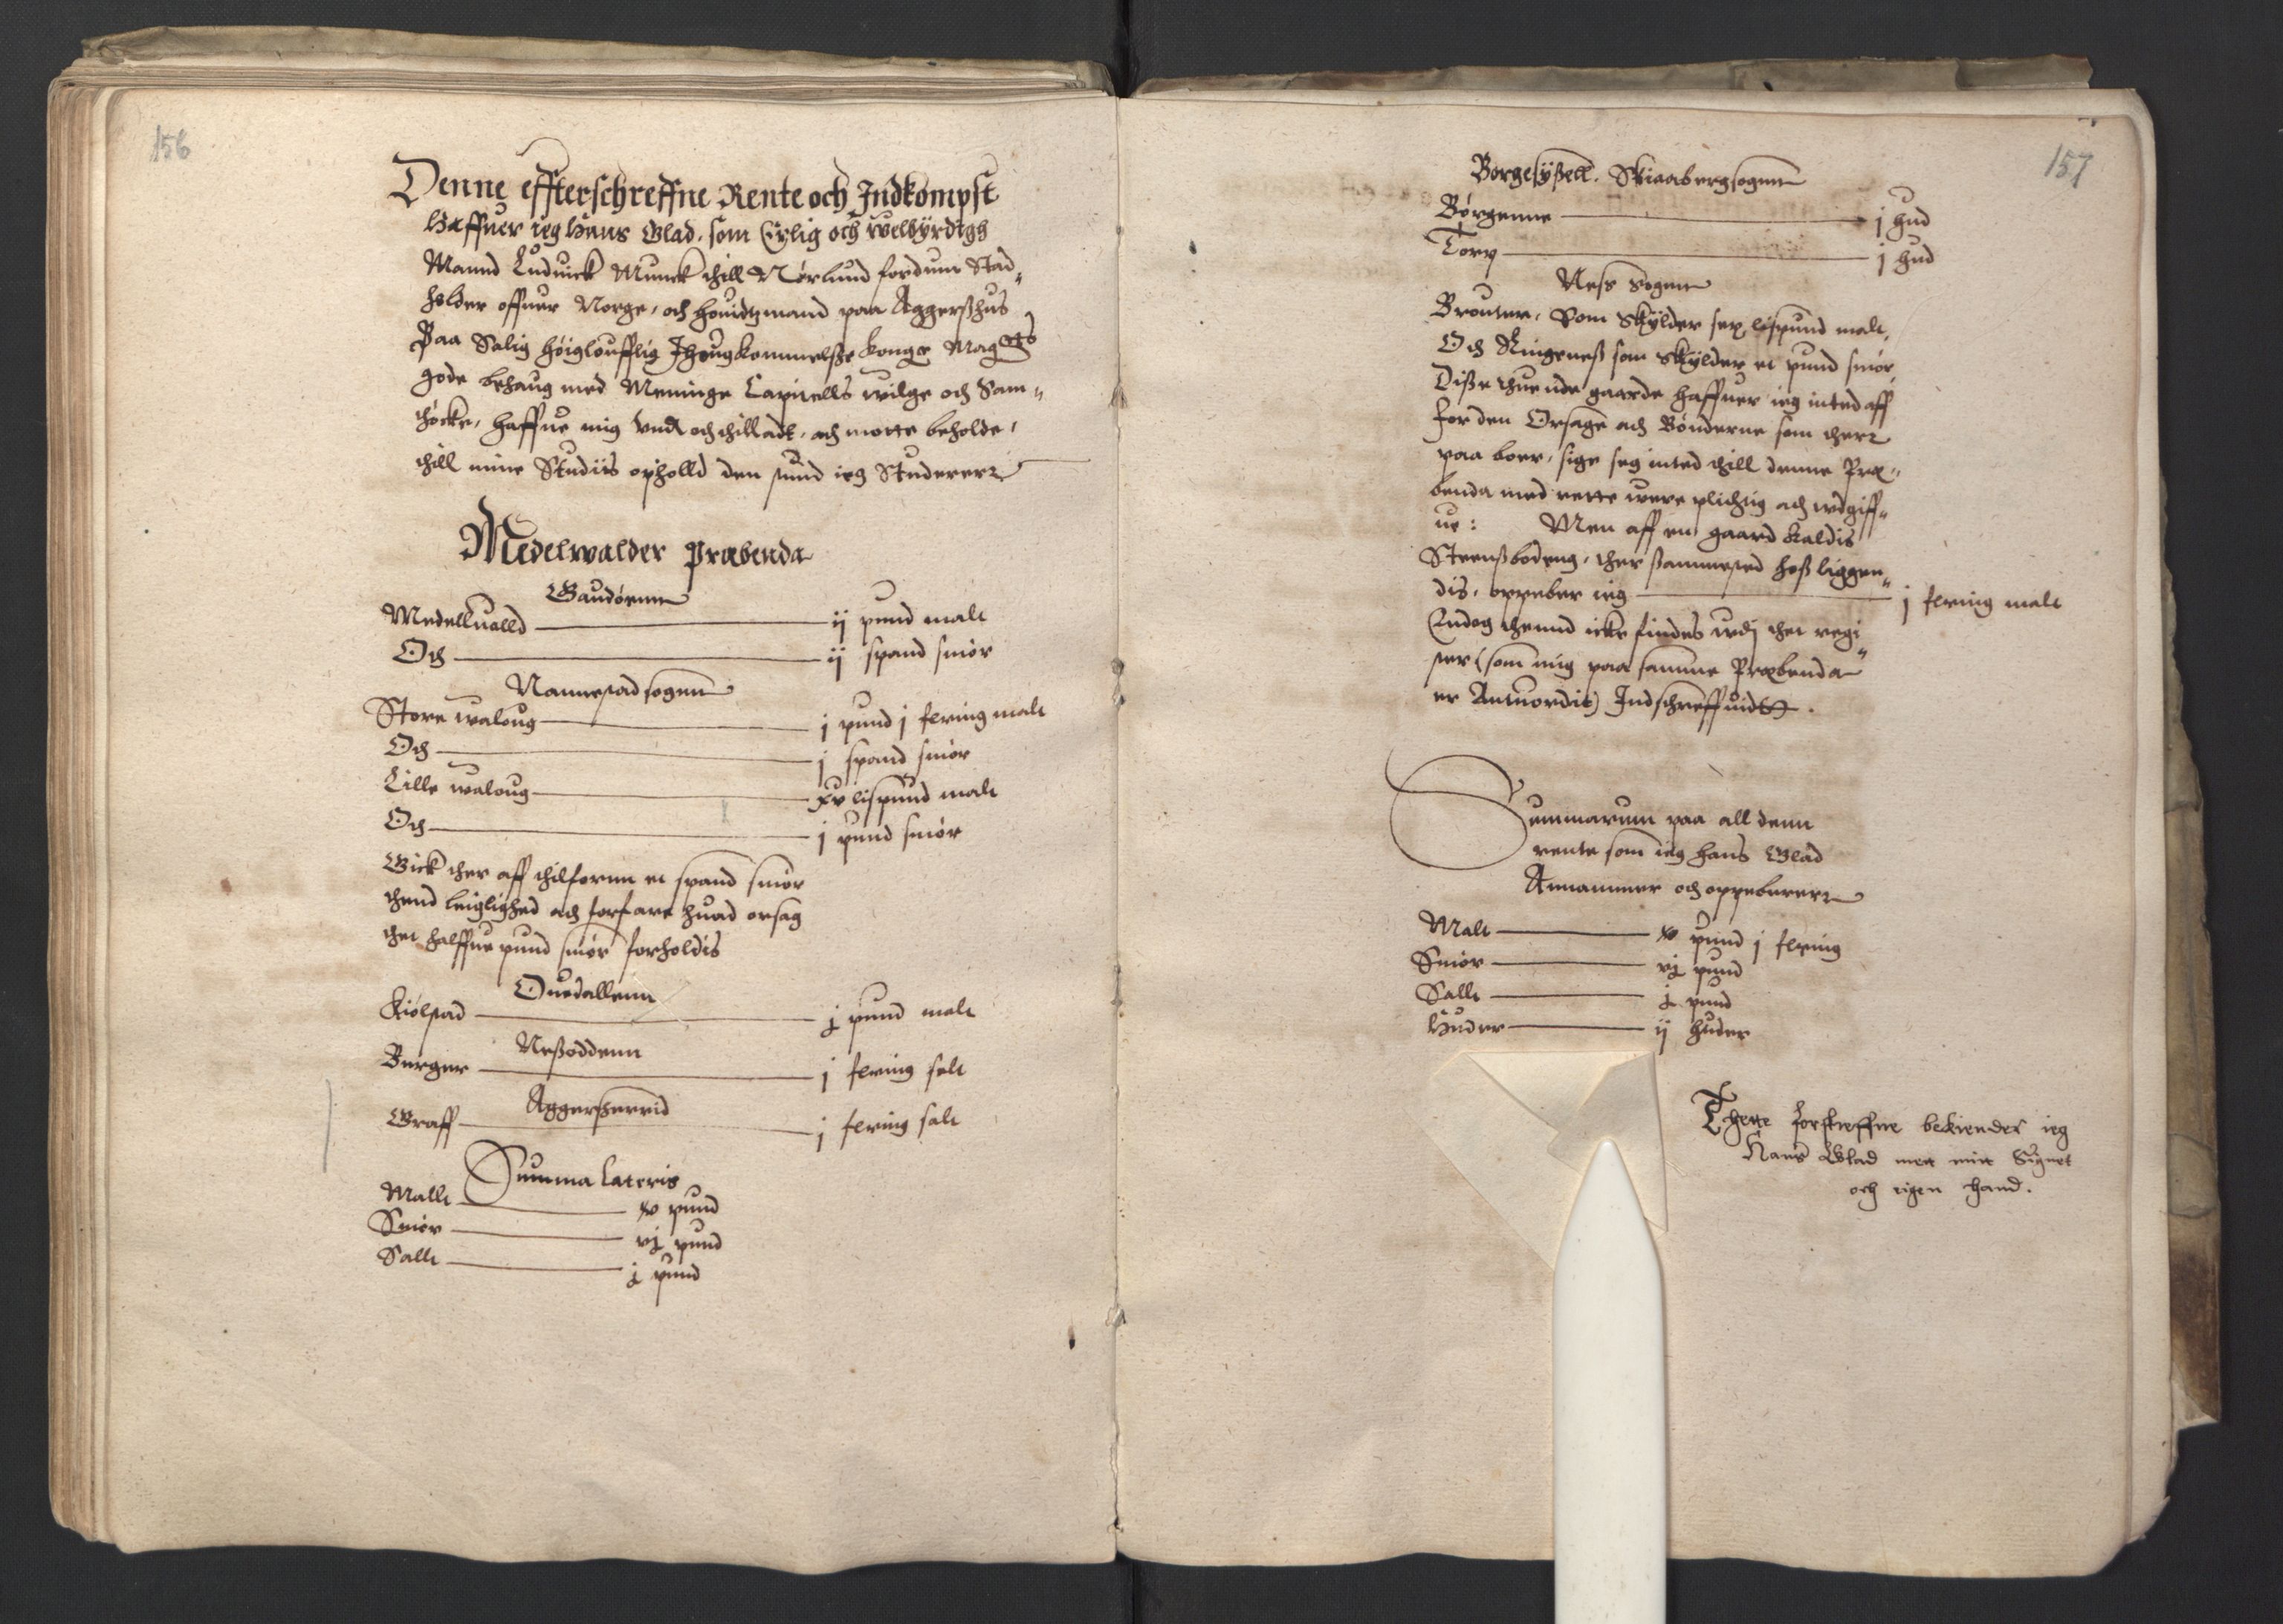 156
Denne effterschreffne Rente och Indkompst
Haffuer ieg Hans Glad, som Erlig och welbyrdigh
Mannd Luduick Munck thill Nørlund fordum Stad-
holder offuer Norge, och houidtzmand paa Aggerßhus
Paa Salig høigloufflig Ihougkommelße kong: Mag: ets
gode behaug med Meninge Capitells wilge och Sam-
thøcke, haffue mig vndt och thilladt, at motte beholde,
thill mine Studiis opholld den stund ieg Studererr
Medelwalder Præbenda
Gaudørnn
Medelluolld ij pund malt
Och ij spand smør
Nannestad sogenn
Store waloug j pund j fering malt
Och j spand smør
Lille waloug xv lispund malt
Och j pund smør
Gick ther aff thilfornn et spand smør
thend leiglighed at forfare huad orsag
thet halffue pund smør forholdis
Ouedallenn
Kiølstad j pund malt
Neßoddenn
Berger j fering salt
Aggerßherrid
Graff j fering salt
Summa Lateris
Mallt xv pund
Smør vj pund
Sallt j pund
157
Borgesyßell. Skiaaberg sogenn
Børgenne j hud
Torp j hud
Ness Sogenn
Brouter, Som skylder sex lispund malt,
Och Ringeneß som skylder et pund smør,
Diße thuende gaarde haffuer ieg inted aff
for den Orsage at Bønderne som therr
paa boer, sige seg inted thill denne Præ-
benda med rette were plichtig at wdgiff-
ue: Men aff en gaard kaldis
Steenßbodeng, ther sammested hoß liggen-
dis, oppeber ieg j fering malt
Endog thennd icke findes wdj thet regi-
ster (som mig paa samme Præbenda
er Antuordit) Indschreffuidtt.
Summarum paa all denn
rente som ieg Hans Glad
Annammer och oppebererr
Malt xv pund j fering
Smør vj pund
Sallt j pund
Huder ij huder
Thette forskreffne bekiender ieg
Hans Glad met mit Signet
och eigen hand.